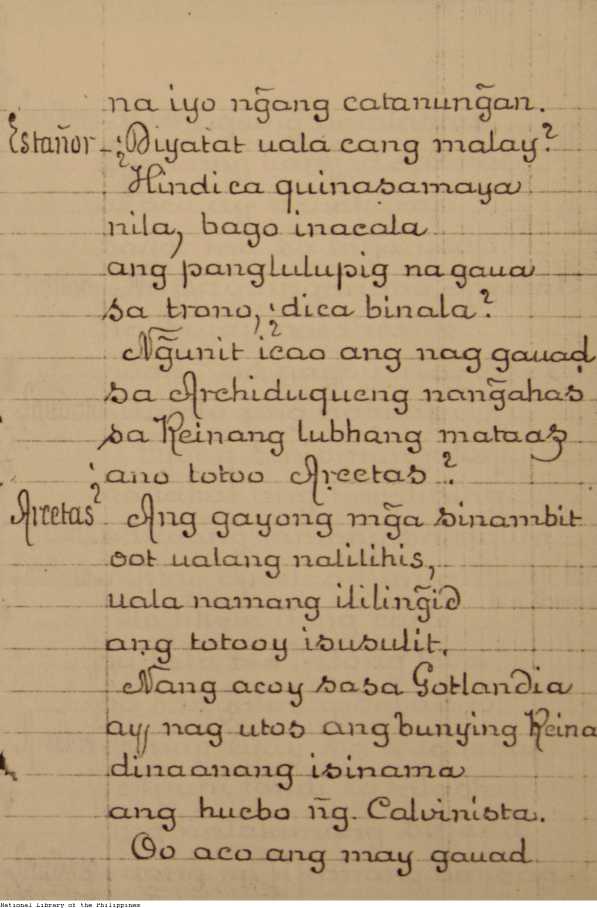 na iyo ng̃ang catanung̃an.
Estañor - ¿Diyatat uala cang malay?
Hindi ca quinasamaya
nila, bago inacala
ang panglulupig na gaua
sa trono, ¿dica binala?
Ng̃unit icao ang nag gauad
sa Archiduqueng nang̃ahas
sa Reinang lubhang mataas
¿ano totoo Arcetas?
Arcetas Ang gayong mg̃a sinambit
oot ualang nalilihis,
uala namang ililing̃id
ang totooy isusulit.
Nang acoy sasa Gotlandia
ay nag utos ang bunying Reina
dinaanang isinama
ang huebo ñg. Calvinista.
Oo aco ang may gauad
National Library of the Philippines